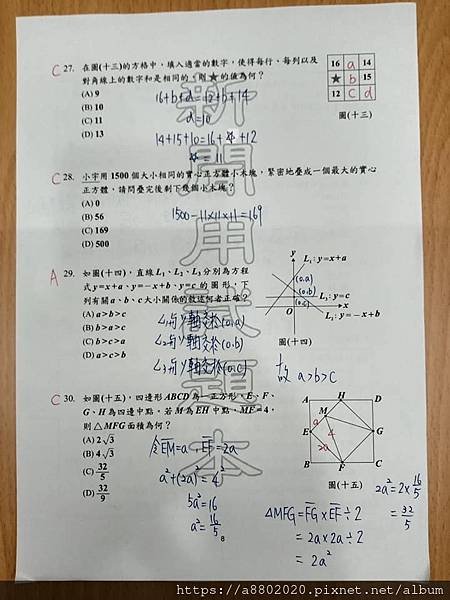 C 27. 在圖(十三)的方格中,填入適當的數字,使得每行、每列以及
對角線上的數字和是相同的,則★的值為何?
(A) 9
(B) 10
(C) 11
(D) 13
16+b+d=12+b+14
d=10
14+15+10=16+☆+12
☆=11
16 a 14
★ b 15
12 c d
圖(十三)
C 28. 小宇用 1500 個大小相同的實心正方體小木塊,緊密地疊成一個最大的實心
正方體,請問疊完後剩下幾個小木塊?
(A) 0
(B) 56
(C) 169
(D) 500
1500-11×11×11=169
A 29. 如圖(十四),直線 L₁、L₂、L₃ 分別為方程
式 y=x+a、y=-x+b、y=c 的圖形,下
列有關 a、b、c 大小關係的敘述何者正確?
(A) a>b>c
(D) a>c>b
L1與y軸交於(0,a)
L2與y軸交於(0,b)
L3與y軸交於(0,c)
故 a>b>c
y
L₁:y=x+a
(0,a)
(0,b)
L₃:y=c
(0,c)
x
0
L₂:y=-x+b
圖(十四)
C 30. 如圖(十五),四邊形 ABCD 為一正方形,E、F、
G、H 為四邊中點,若 M 為 EH 中點,MF=4,
則△MFG 面積為何?
(A) 2√3
(B) 4√3
(C) 32/5
(D) 32/9
令EM=a,EF=2a
a²+(2a)²=4²
5a²=16
a²=16/5
A H D
M
E a 4 G
2a
B F C
圖(十五)
△MFG=FG×EF÷2
=2a×2a÷2
=2a²
2a²=2×16/5
=32/5
8
新開用試題本
https://a8802020.pixnet.net/album